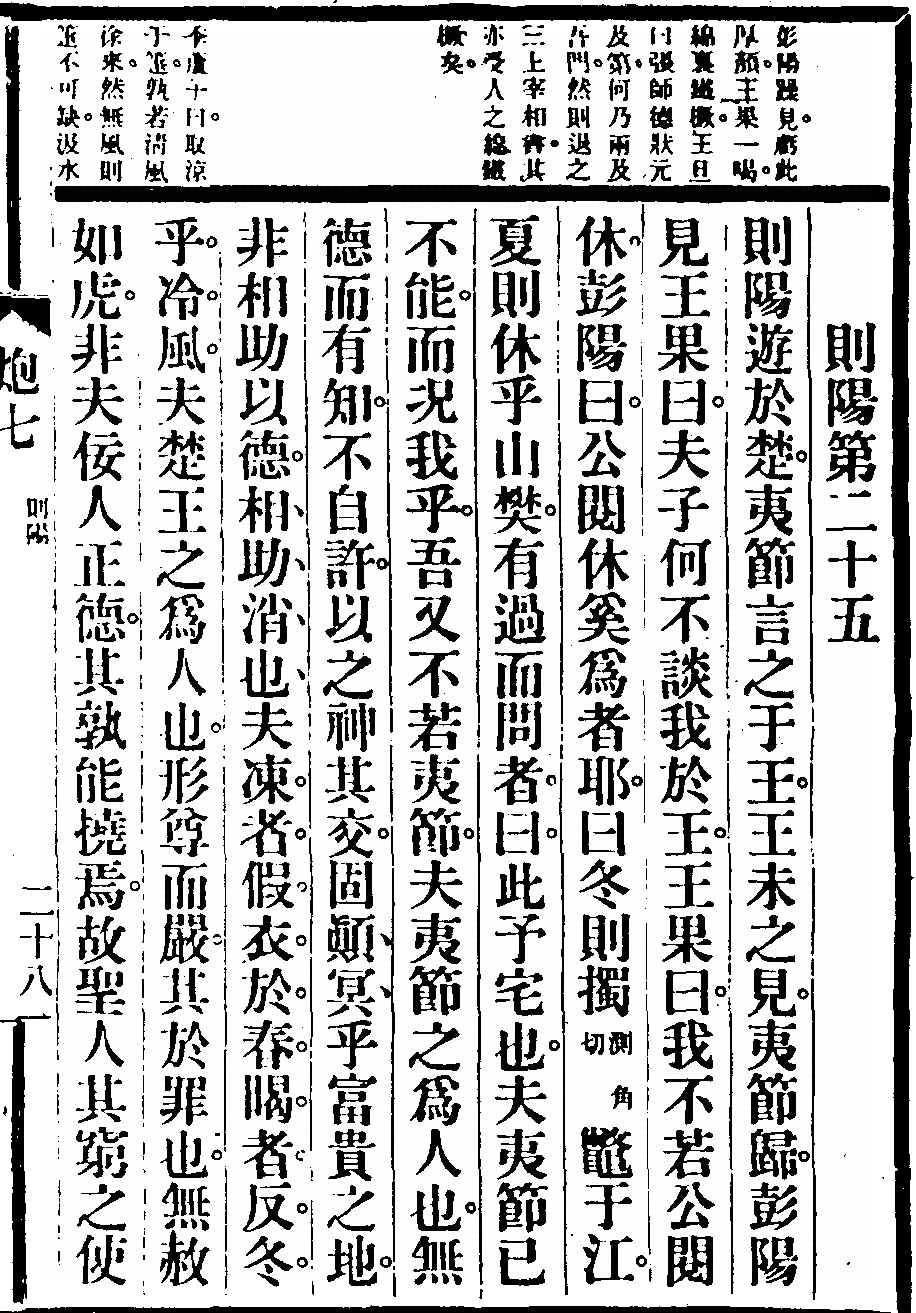 彭陽躁。見虧此
厚顏。王果一喝。
綿裏鐵橛。王旦
曰張師德狀元
及第。何乃兩及
吾門。然則退之
三上宰相書。其
亦受人之綿鐵
橛矣。
李虛十曰。取涼
于箑。孰若清風
徐來。然無風則
箑不可缺。汲水
則陽第二十五
則陽遊於楚。夷節言之于王。王未之見。夷節歸。彭陽
見王果曰。夫子何不談我於王。王果曰。我不若公閱
休。彭陽曰。公閱休奚爲者耶。曰冬則擉測角切鼈于江。
夏則休乎山樊。有過而問者。曰。此予宅也。夫夷節已
不能。而況我乎。吾又不若夷節。夫夷節之爲人也。無
德而有知。不自許。以之神其交。固顛、冥、乎富貴之地。
非相助以德。相、助、消、也、夫凍者。假衣。於春。暍者。反冬。
乎。冷。風。夫楚王之爲人也。形尊而嚴。其於罪也。無赦
如虎。非夫佞人正德。其孰能撓焉。故聖人其窮之使
炮七
則陽
二十八